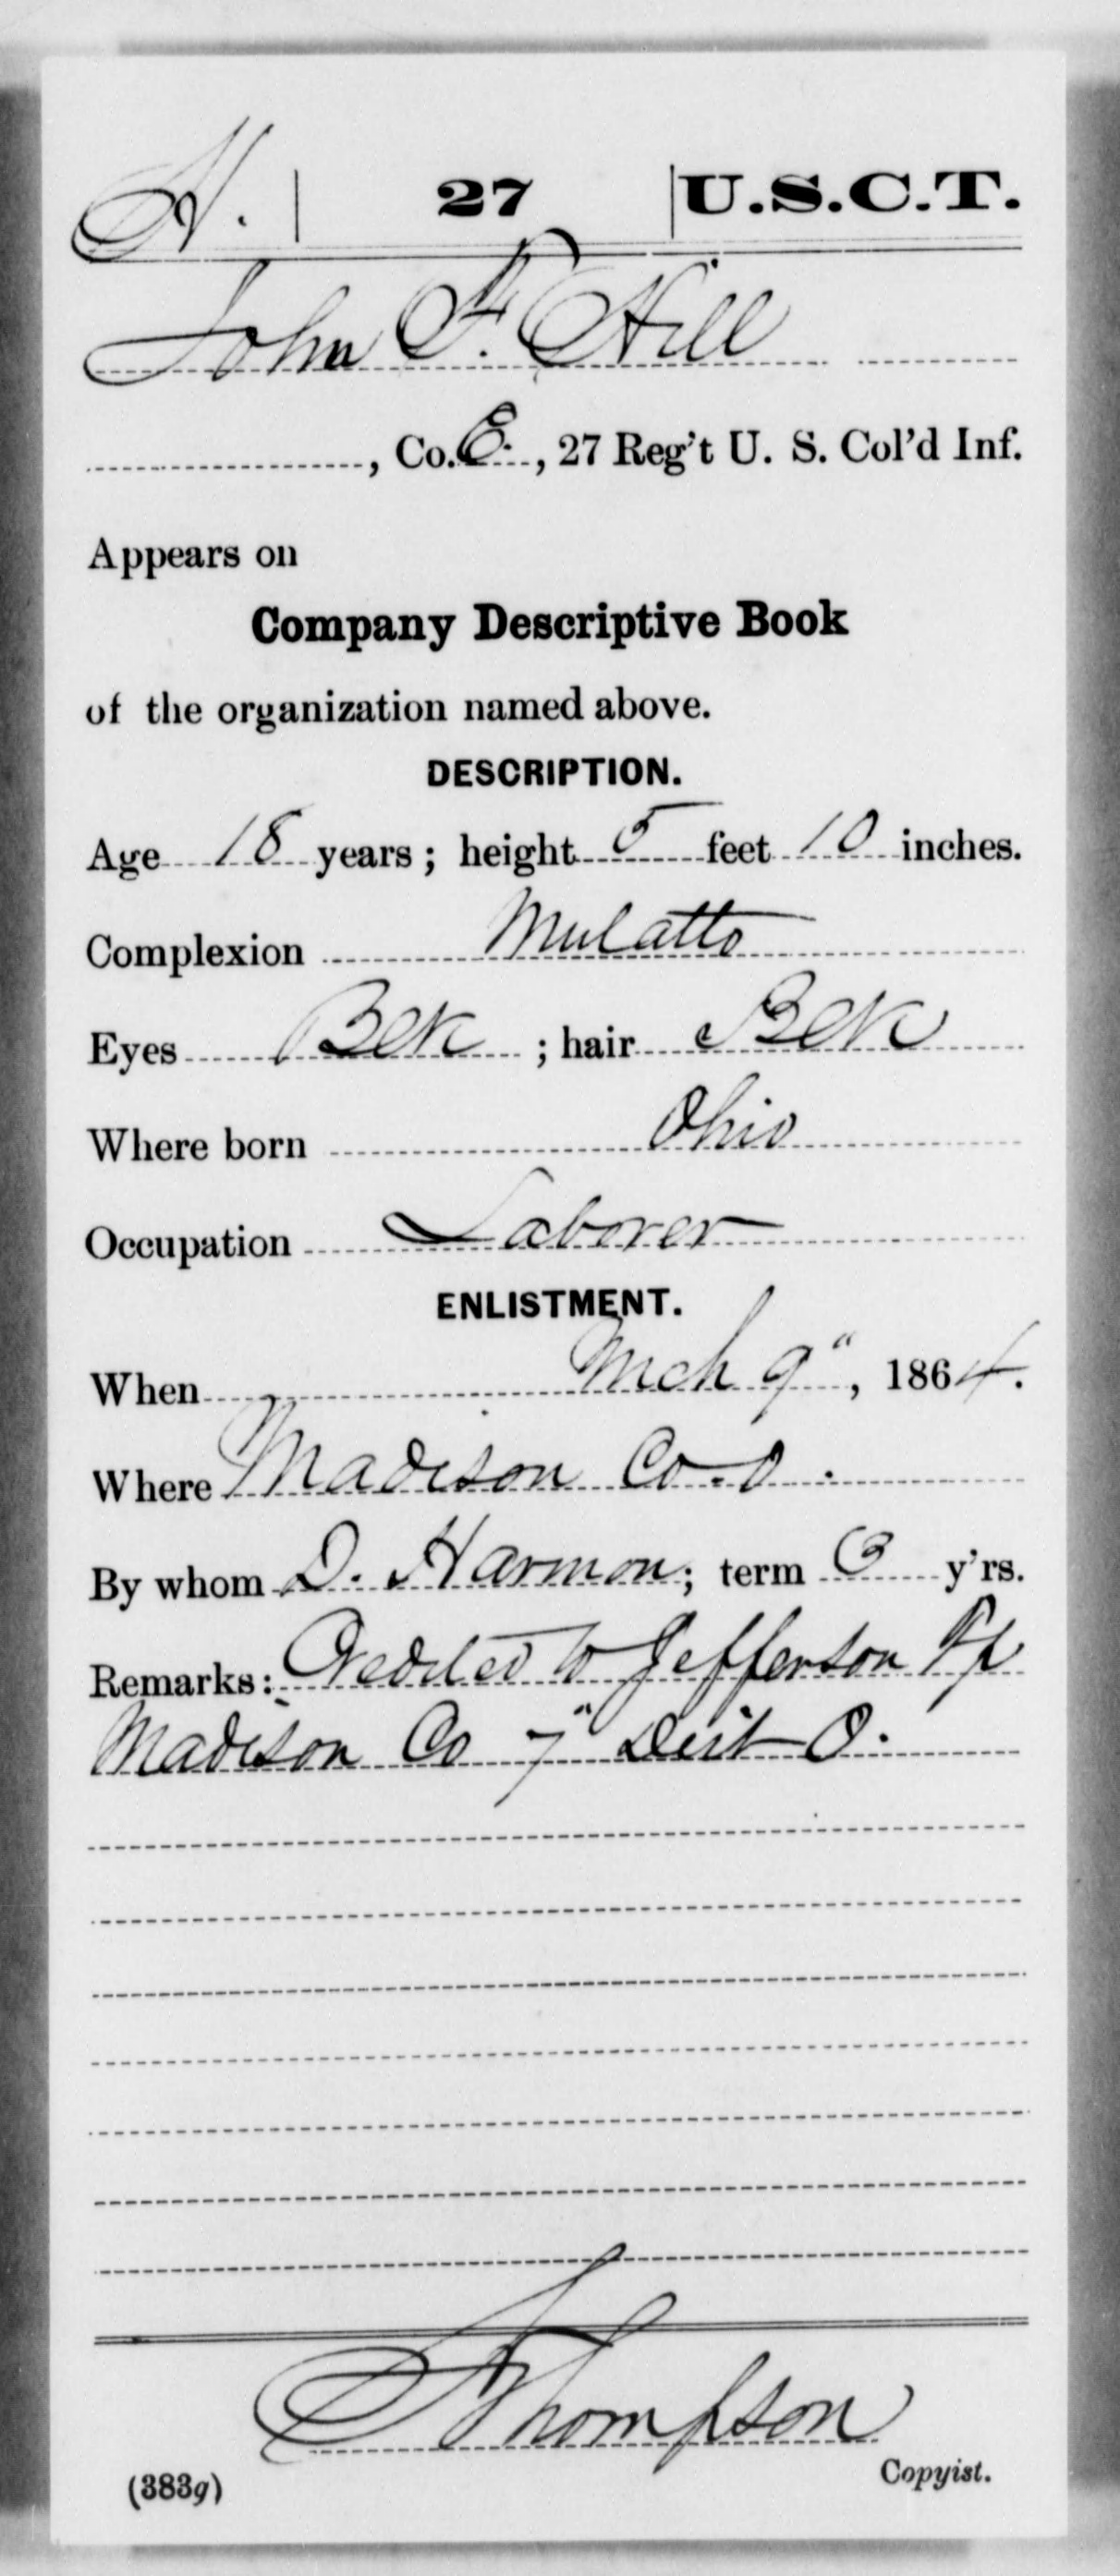 H. | 27 | U.S.C.T.
John F. Hill
, Co. E., 27 Reg't U. S. Col'd Inf.
Appears on
Company Descriptive Book
of the organization named above.
DESCRIPTION.
Age 18 years; height 5 feet 10 inches.
Complexion Mulatto
Eyes Blk ; hair Blk
Where born Ohio
Occupation Laborer
ENLISTMENT.
When Mch 9", 1864.
Where Madison Co. O.
By whom D. Harmon; term 3 y'rs.
Remarks: Credited to Jefferson Tp
Madison Co 7" Dist O.
Thompson
Copyist.
(383g)